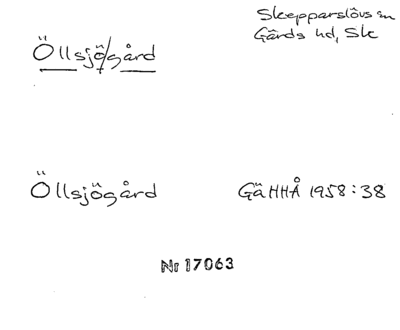 Skepparslövs sn
Gärds hd, Sk
Öllsjö/gård
Öllsjögård
GäHHÅ 1958:38
Nr 17063